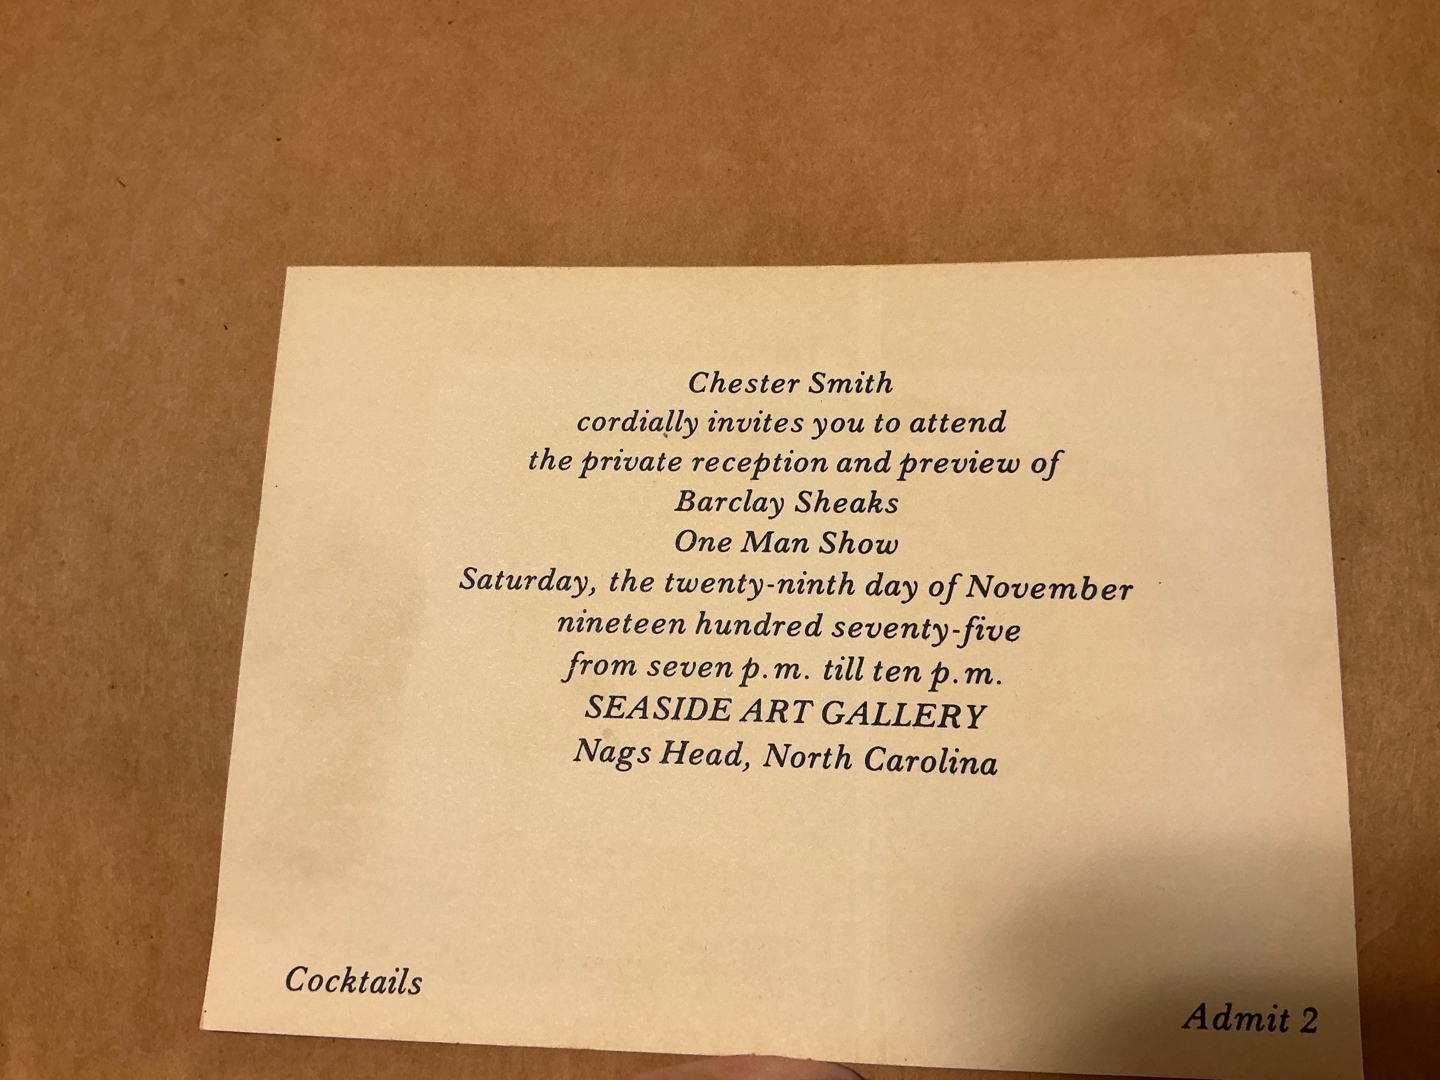 Chester Smith
cordially invites you to attend
the private reception and preview of
Barclay Sheaks
One Man Show
Saturday, the twenty-ninth day of November
nineteen hundred seventy-five
from seven p.m. till ten p.m.
SEASIDE ART GALLERY
Nags Head, North Carolina
Cocktails
Admit 2